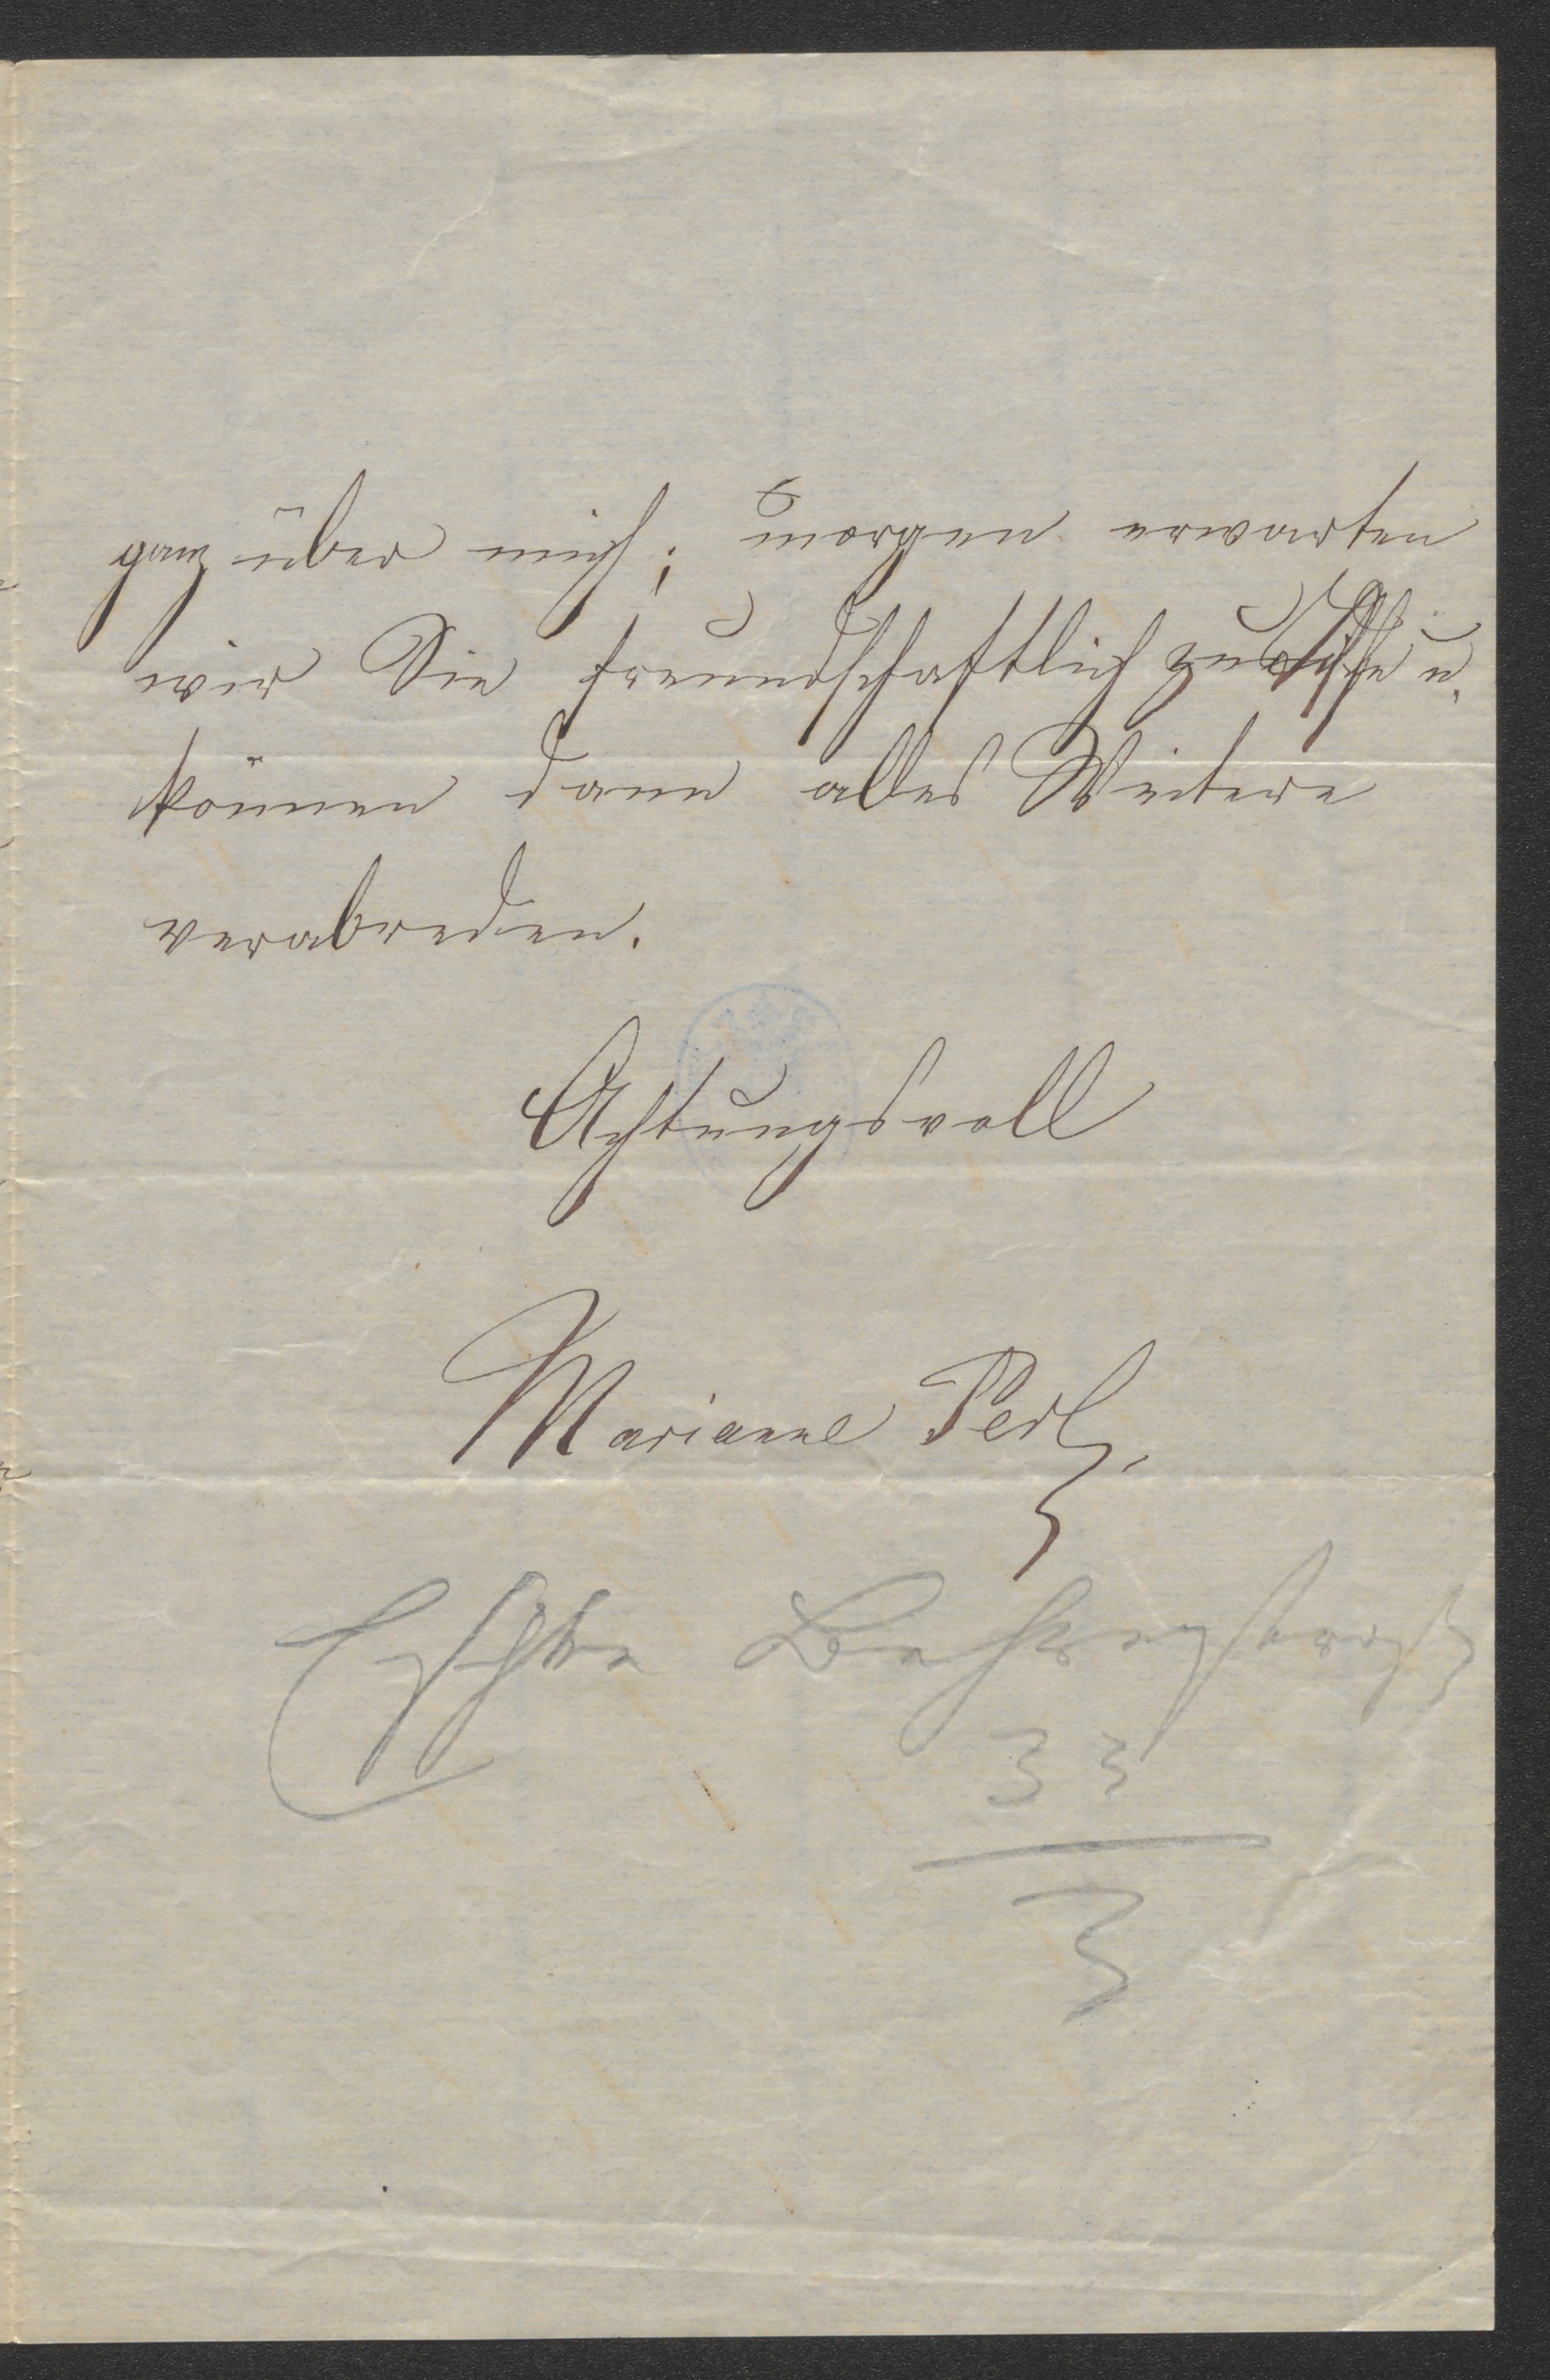 ganz über mich; morgen erwarten
wir Sie freundschaftlich zu Tische u.
können dann alles Weitere
verabreden.
Achtungsvoll
Marianne Perl.
33
3